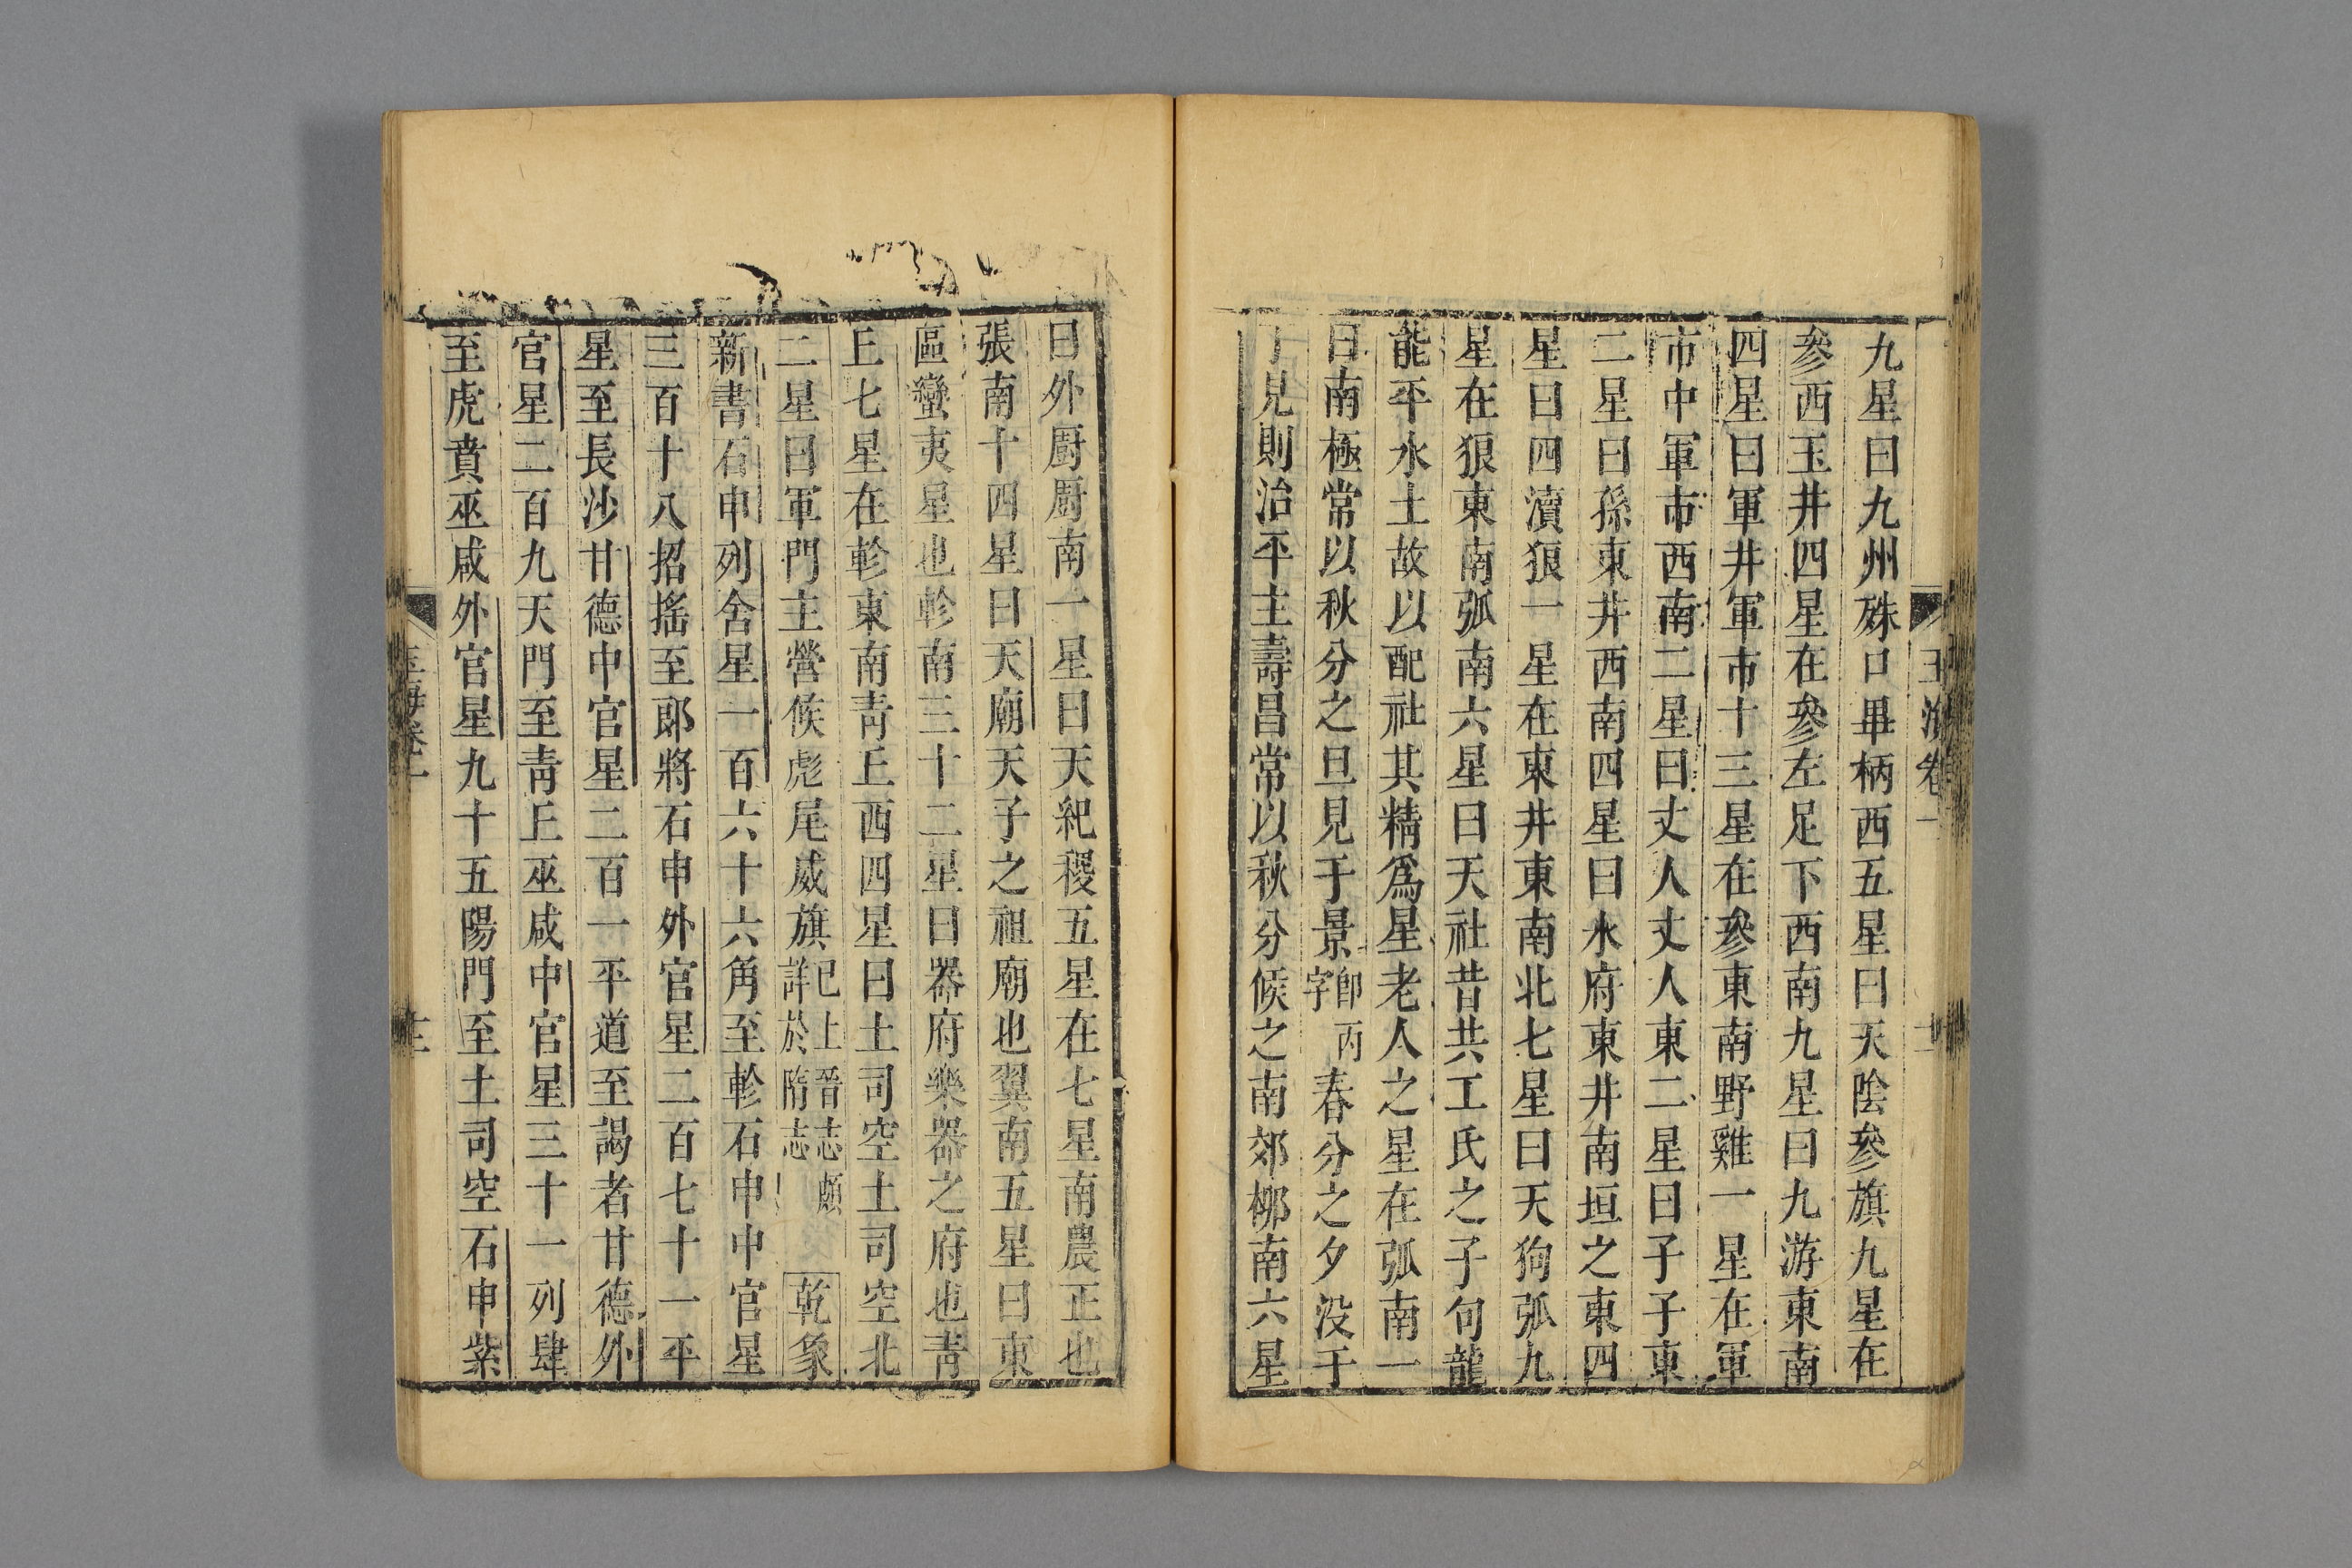 玉海卷一
九星曰九州殊口畢柄西五星曰天陰參旗九星在
參西玉井四星在參左足下西南九星曰九游東南
四星曰軍井軍市十三星在參東南野雞一星在軍
市中軍市西南二星曰丈人丈人東二星曰子子東
二星曰孫東井西南四星曰水府東井南垣之東四
星曰四瀆狼一星在東井東南北七星曰天狗弧九
星在狼東南弧南六星曰天社昔共工氏之子句龍
能平水土故以配社其精爲星老人之星在弧南一
曰南極常以秋分之旦見于景即丙字春分之夕没于
丁見則治平主壽昌常以秋分候之南郊柳南六星
曰外厨厨南一星曰天紀稷五星在七星南農正也
張南十四星曰天廟天子之祖廟也翼南五星曰東
區蠻夷星也軫南三十二星曰器府樂器之府也青
丘七星在軫東南青丘西四星曰土司空土司空北
二星曰軍門主營候彪尾威旗已上晉志頗詳於隋志乾象
新書石申列舍星一百六十六角至軫石申中官星
三百十八招搖至郎將石申外官星二百七十一平
星至長沙甘德中官星二百一平道至謁者甘德外
官星二百九天門至青丘巫咸中官星三十一列肆
至虎賁巫咸外官星九十五陽門至土司空石申紫
玉海卷一